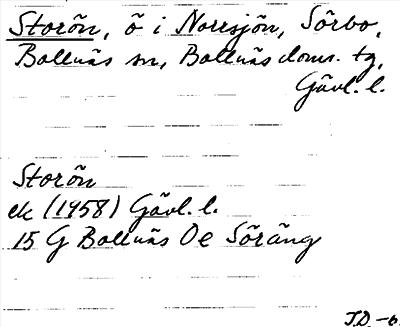 Storön, ö i Norrsjön, Sörbo,
Bollnäs sn, Bollnäs doms. tg,
Gävl. l.
Storön
ek (1958) Gävl. l.
15 G Bollnäs Oe Söräng